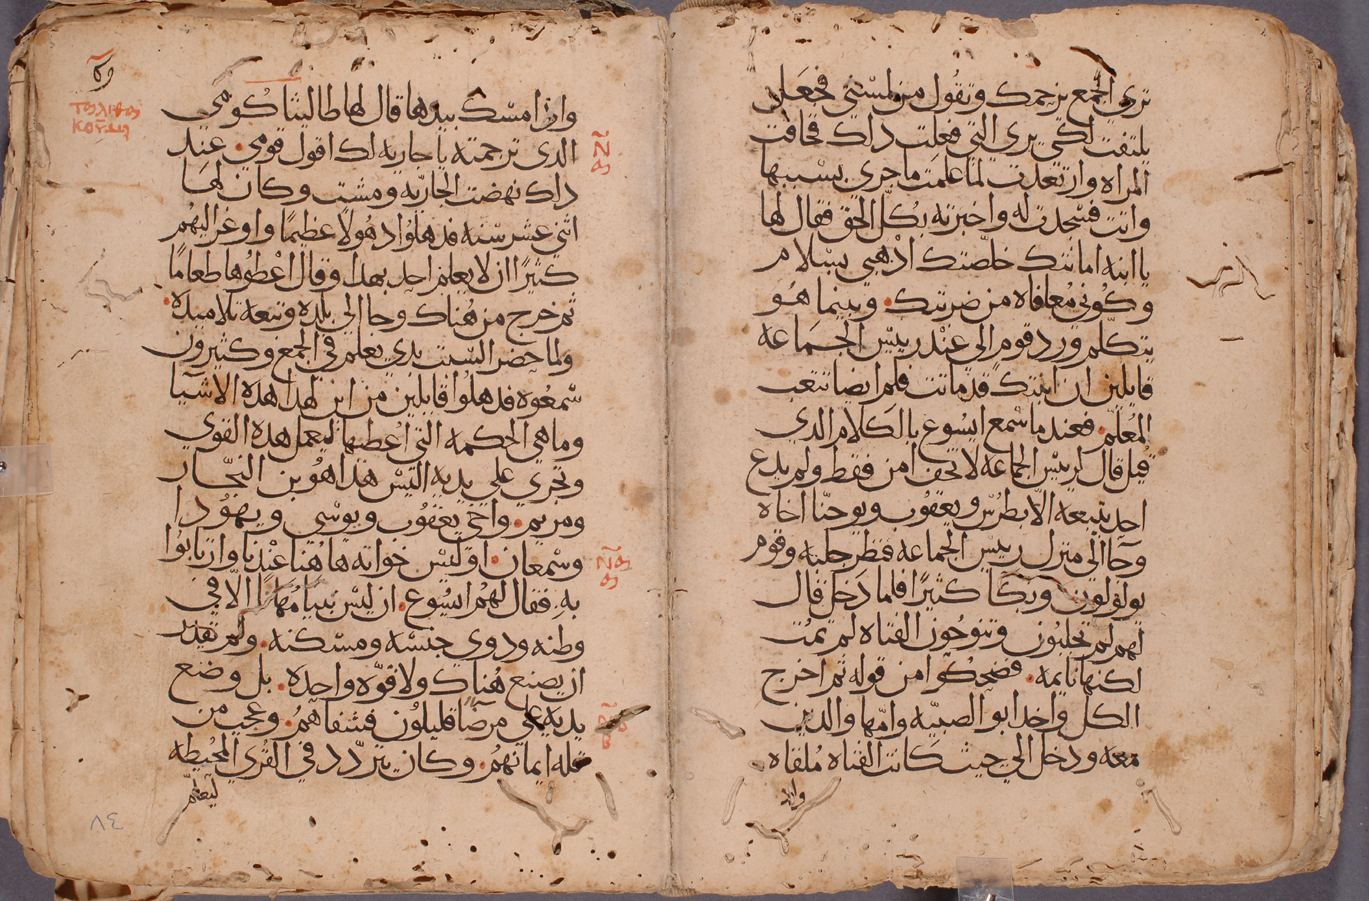 ترى الجمع يزحمك وتقول من لمسني فجعل
يلتفت لكي يرى التي فعلت داك فخافت
المراه وارتعدت لما علمت ما جرى بسببها
واتت فسجدت له واخبرته بكل الحق فقال لها
يا ابنه امانتك خلصتك ادهبي بسلام
وكوني معافاه من ضربتك. وبينما هو
يتكلم ورد قوم الى عند رييس الجماعه
قايلين ان ابنتك قد ماتت فلم ايضا تتعب
المعلم. فعند ما سمع ايسوع بالكلام الدي
قيل قال لرييس الجماعه لا تخف امن فقط ولم يدع
احد يتبعه الا بطرس ويعقوب ويوحنا اخاه
وجا الى منزل رييس الجماعه فنظر جلبه وقوم
يولولون وبكا كثيرًا فلما دخل قال
لهم لم تجلبون وتنوحون الفتاه لم تمت
لكنها نايمه. فضحكوا من قوله ثم اخرج
الكل واخد ابو الصبيه وامها والدين
معه ودخل الى حيث كانت الفتاه ملقاه
واد
وادا مسك بيدها قال لها طاليثا كومي
الدي ترجمته يا جاريه لك اقول قومي. عند
داك نهضت الجاريه ومشت وكان لها
اثني عشر سنه فدهلوا دهولًا عظيمًا واوعز اليهم
كثيرًا ان لا يعلم احد بهدا وقال اعطوها طعامًا
ثم خرج من هناك وجا الى بلده وتبعه تلاميده.
ولما حضر السبت بدي يعلم في الجمع وكثيرون
سمعوه فدهلوا قايلين من اين لهدا هده الاشيا
وما هي الحكمه التي اعطيها ليعمل هده القوي
وتجري على يديه اليس هدا هو بن النجار
ومريم. واخي يعقوب ويوسي ويهودا
وسمعان. اوليس خواته هاهنا عندنا وارتابوا
به. فقال لهم ايسوع. ان ليس نبيا مهانًا الا في
وطنه ودوي جنسه ومسكنه. ولم يقدر
ان يصنع هناك ولا قوه واحده. بل وضع
يديه على مرضًا قليلون فشفاهم. وعجب من
قله ايمانهم. وكان يتردد في القرى المحيطه
ليعلم
ⲧⲁⲗⲓⲑⲁ
ⲕⲟⲩⲙⲓ
٨٤